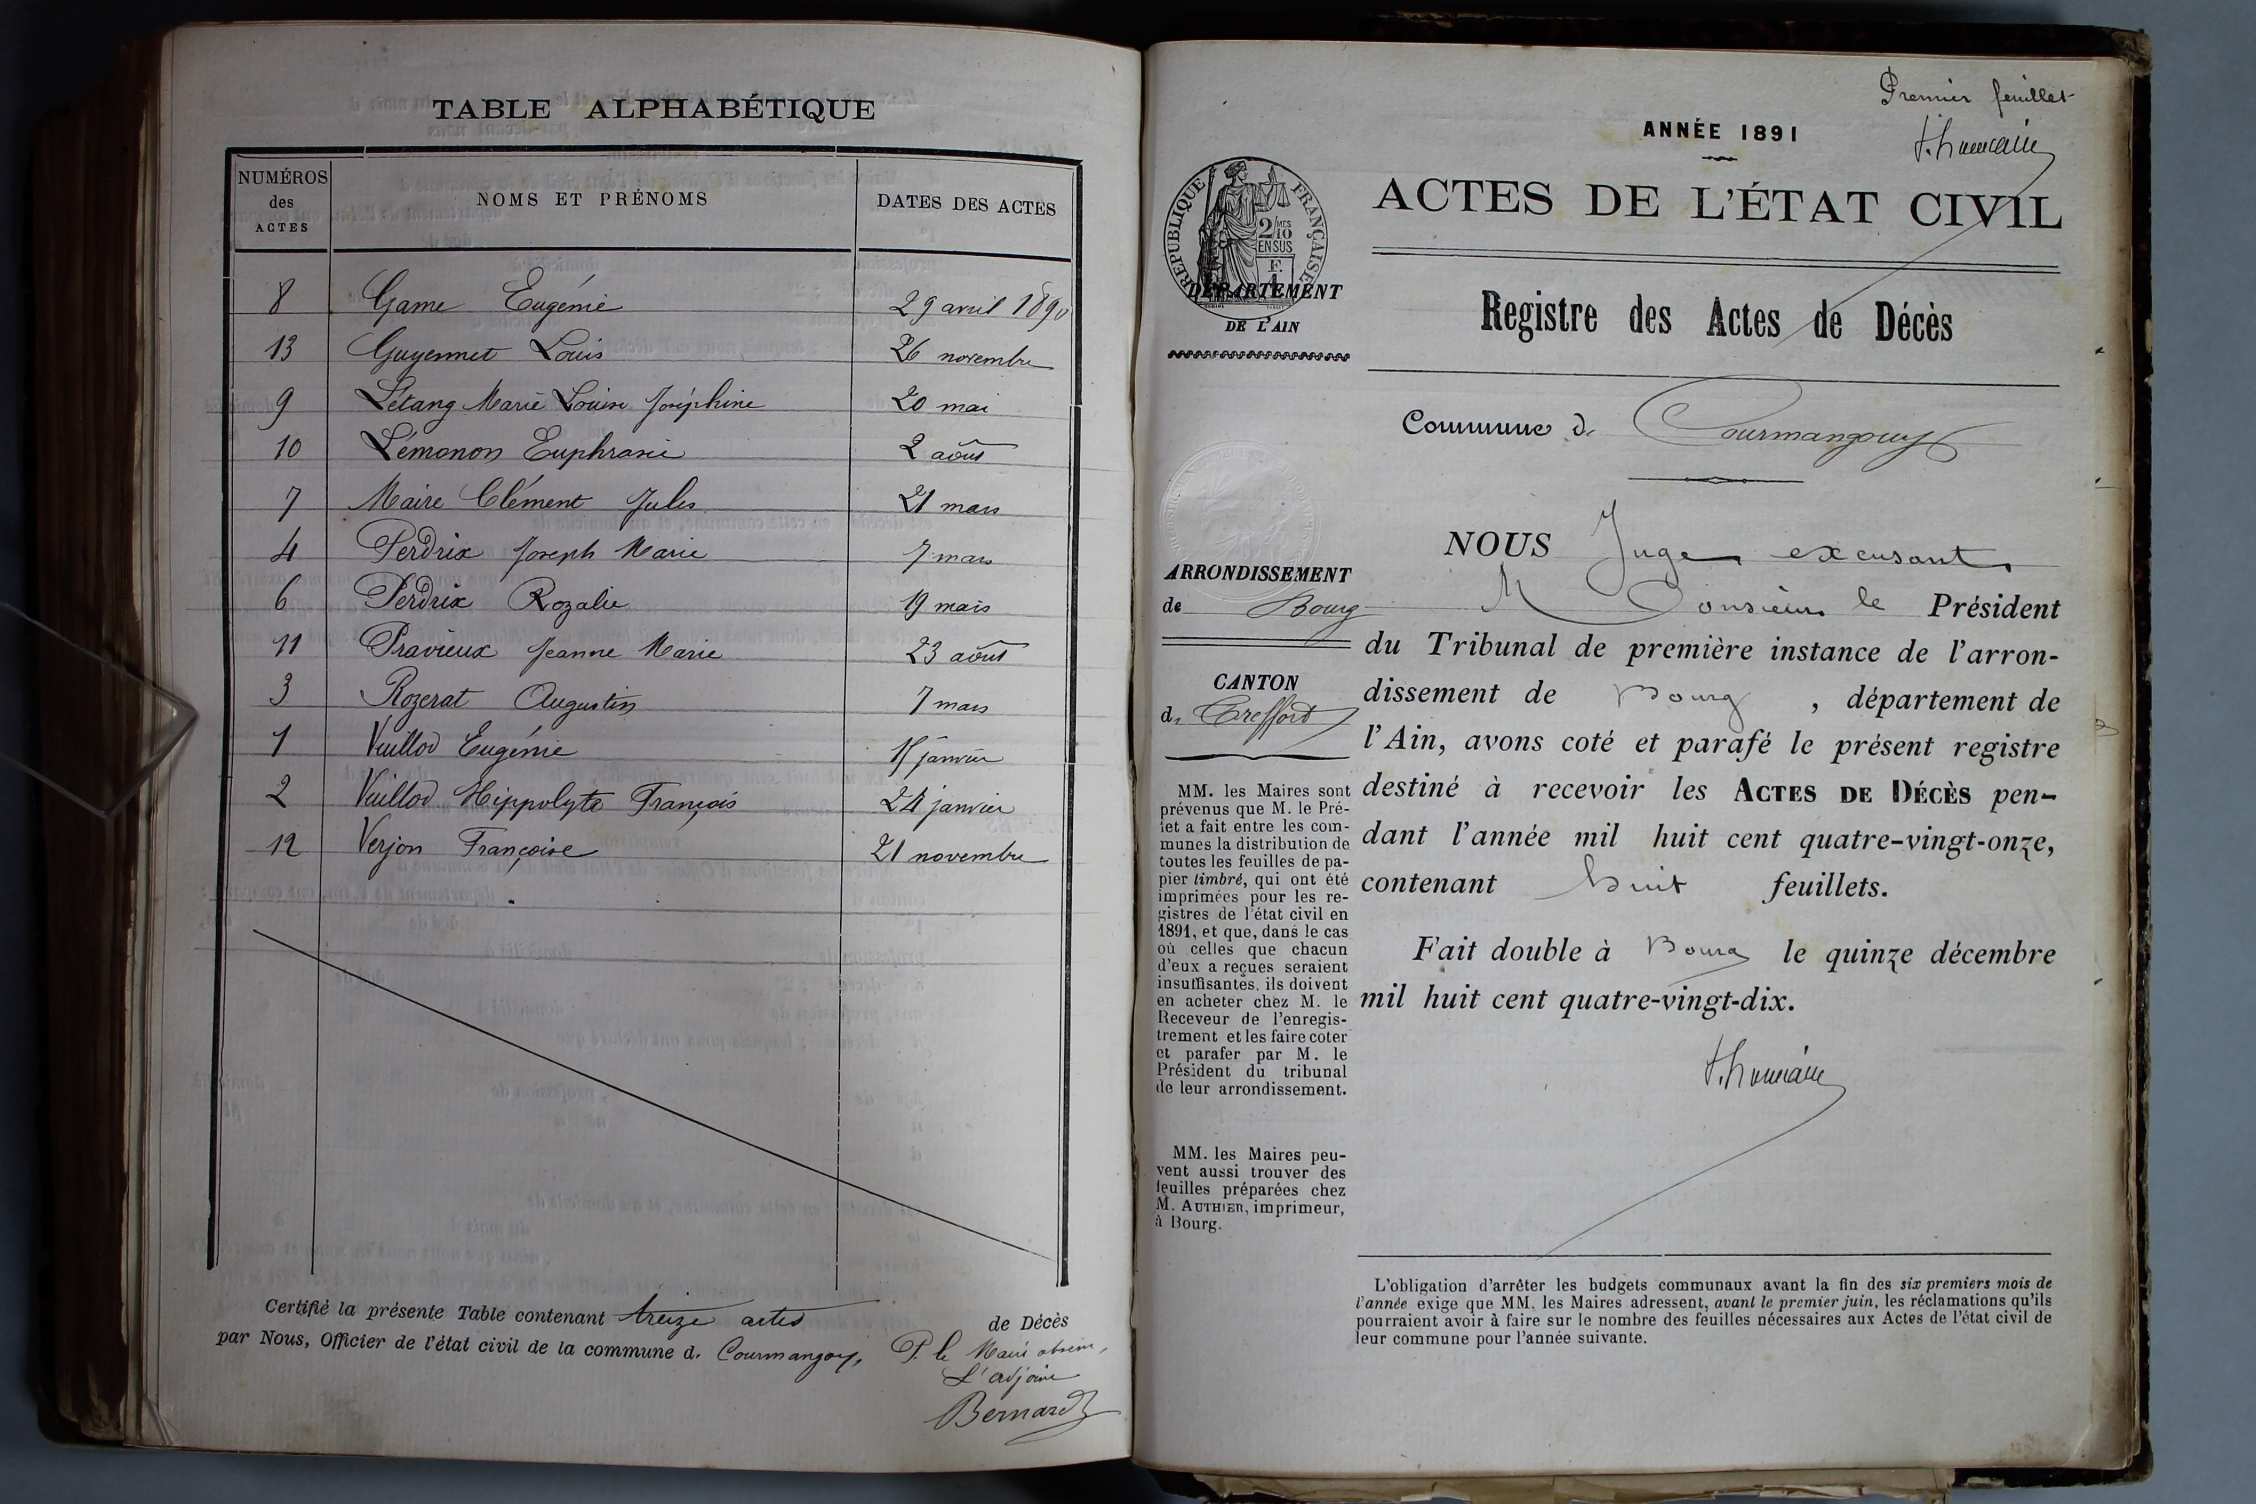 TABLE ALPHABÉTIQUE
NUMÉROS des ACTES NOMS ET PRÉNOMS DATES DES ACTES
8 Game Eugénie 29 avril 1890
13 Guyennet Louis 26 novembre
9 Létang Marie Louise Joséphine 20 mai
10 Lémonon Euphrasie 2 août
7 Maire Clément Jules 21 mars
4 Perdrix Joseph Marie 7 mars
6 Perdrix Rozalie 19 mars
11 Pravieux Jeanne Marie 23 août
3 Rozerat Augustin 7 mars
1 Vuillod Eugénie 15 janvier
2 Vuillod Hippolyte François 24 janvier
12 Verjon Françoise 21 novembre
Certifié la présente Table contenant treize actes de Décès
par Nous, Officier de l'état civil de la commune d. Courmangoux,
P. le Maire absent,
L'adjoint
Bernard
Premier feuillet
ANNÉE 1891
ACTES DE L'ÉTAT CIVIL
RÉPUBLIQUE FRANÇAISE
2/10 MES
EN SUS
F.
1
DÉPARTEMENT
DE L'AIN
Registre des Actes de Décès
Commune de Courmangoux
ARRONDISSEMENT
de Bourg
CANTON
de Treffort
MM. les Maires sont
prévenus que M. le Pré-
fet a fait entre les com-
munes la distribution de
toutes les feuilles de pa-
pier timbré, qui ont été
imprimées pour les re-
gistres de l'état civil en
1891, et que, dans le cas
où celles que chacun
d'eux a reçues seraient
insuffisantes, ils doivent
en acheter chez M. le
Receveur de l'enregis-
trement et les faire coter
et parafer par M. le
Président du tribunal
de leur arrondissement.
MM. les Maires peu-
vent aussi trouver des
feuilles préparées chez
M. AUTHIER, imprimeur,
à Bourg.
NOUS Juge excusant
Monsieur le Président
du Tribunal de première instance de l'arron-
dissement de Bourg, département de
l'Ain, avons coté et parafé le présent registre
destiné à recevoir les ACTES DE DÉCÈS pen-
dant l'année mil huit cent quatre-vingt-onze,
contenant huit feuillets.
Fait double à Bourg le quinze décembre
mil huit cent quatre-vingt-dix.
L'obligation d'arrêter les budgets communaux avant la fin des six premiers mois de
l'année exige que MM. les Maires adressent, avant le premier juin, les réclamations qu'ils
pourraient avoir à faire sur le nombre des feuilles nécessaires aux Actes de l'état civil de
leur commune pour l'année suivante.